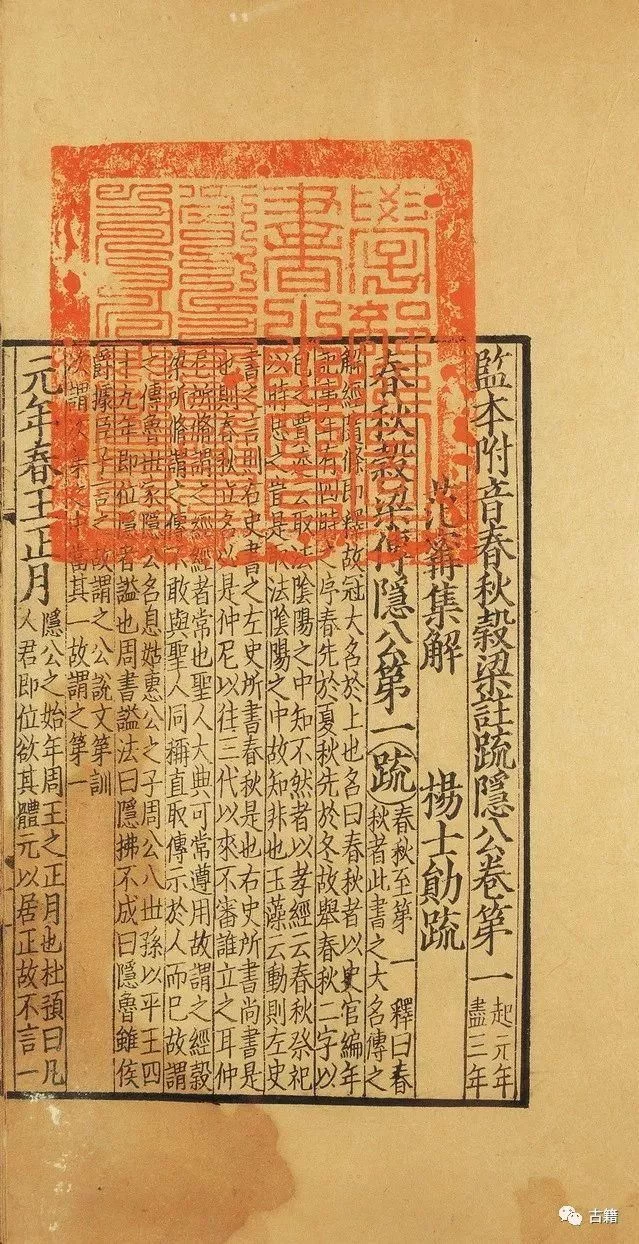 監本附音春秋穀梁註疏隱公卷第一
起元年
盡三年
范甯集解 楊士勛疏
春秋穀梁傳隱公第一 疏
春秋至第一 釋曰春
秋者此書之大名傳之
解經隨條即釋故冠大名於上也名曰春秋者以史官編年
記事年有四時之序春先於夏秋先於冬故舉春秋二字以
包之賈逵云取法陰陽之中知不然者以孝經云春秋祭祀
以時思之豈是取法陰陽之中故知非也玉藻云動則左史
書之言則右史書之左史所書春秋是也右史所書尚書是
也則春秋立名必是仲尼以往三代以來不審誰立之耳仲
尼所脩謂之經經者常也聖人大典可常遵用故謂之經穀
梁所脩謂之傳不敢與聖人同稱直取傳示於人而已故謂
之傳魯世家隱公名息姑惠公之子周公八世孫以平王四
十九年即位隱者謚也周書謚法曰隱拂不成曰隱魯雖侯
爵據臣子言之故謂之公說文第訓
次謂次第之中當其一故謂之第一
元年春王正月
隱公之始年周王之正月也杜預曰凡
人君即位欲其體元以居正故不言一
學部圖書之印
古籍